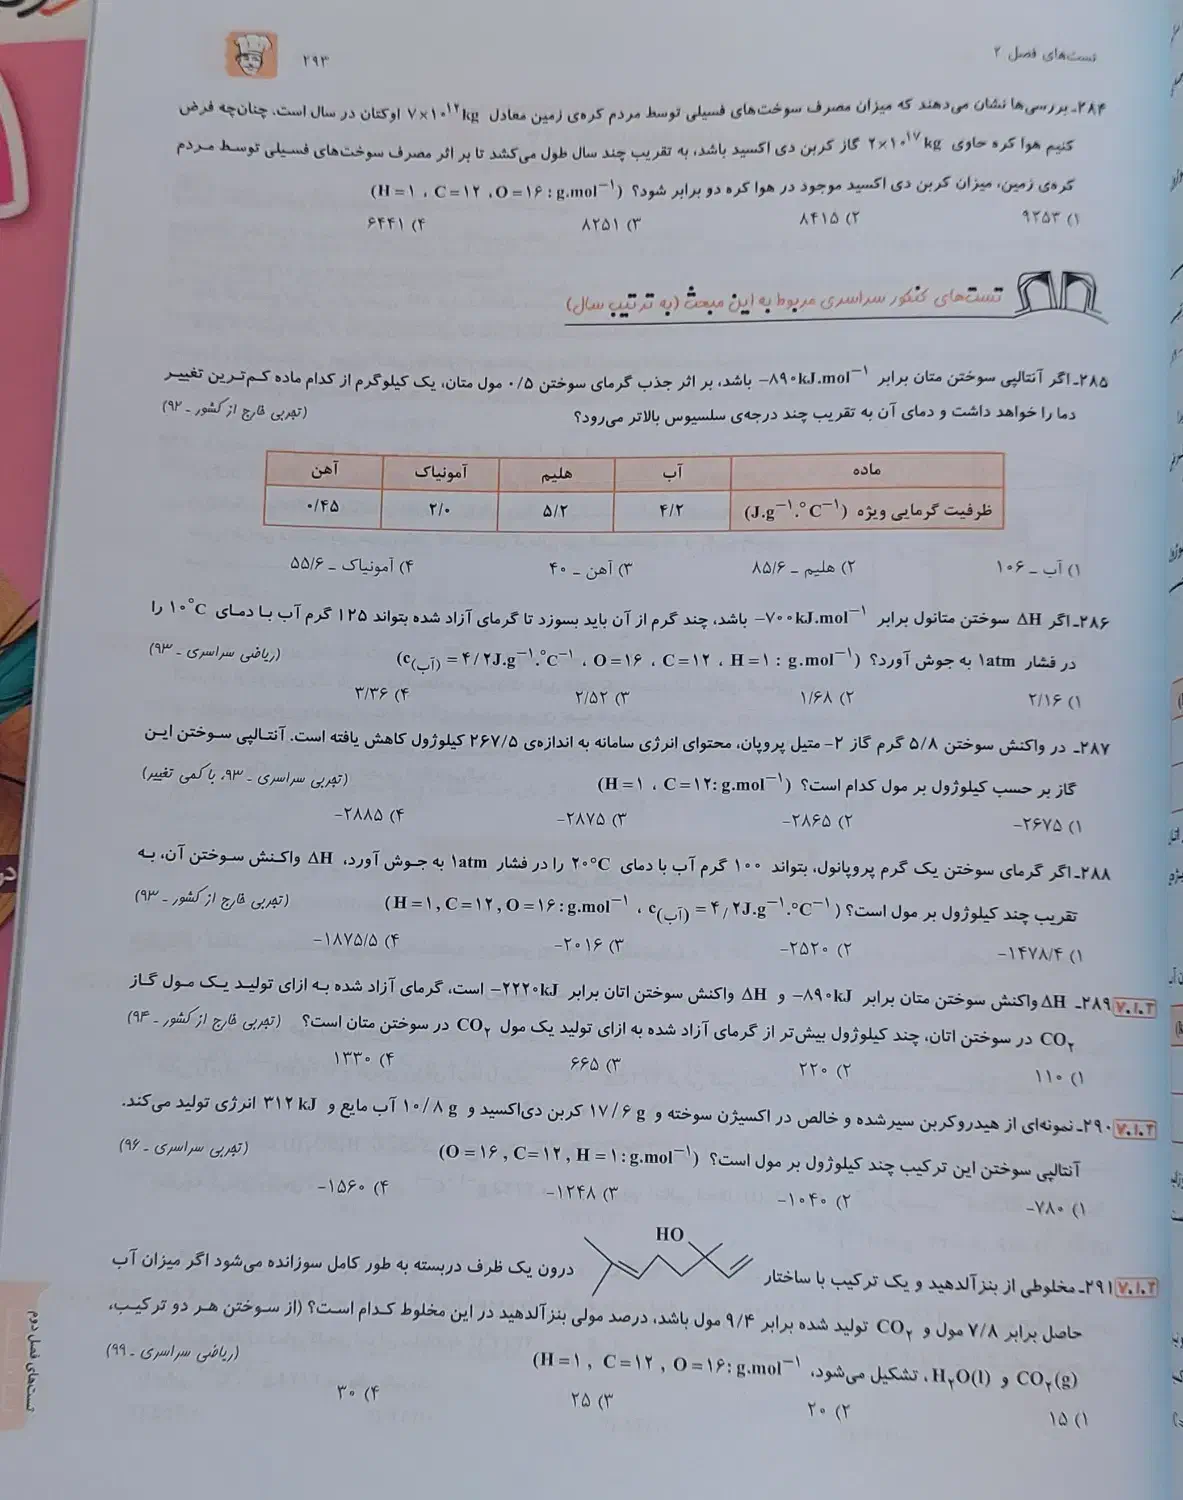 تست‌های فصل ۲
۲۹۳
۲۸۴ـ بررسی‌ها نشان می‌دهند که میزان مصرف سوخت‌های فسیلی توسط مردم کره‌ی زمین معادل ۷×۱۰¹²kg اوکتان در سال است. چنان‌چه فرض
کنیم هوا کره حاوی ۲×۱۰¹⁷kg گاز کربن دی اکسید باشد، به تقریب چند سال طول می‌کشد تا بر اثر مصرف سوخت‌های فسیلی توسط مردم
کره‌ی زمین، میزان کربن دی اکسید موجود در هوا کره دو برابر شود؟ (H=۱ ، C=۱۲ ،O=۱۶ : g.mol⁻¹)
۱) ۹۲۵۳ ۲) ۸۴۱۵ ۳) ۸۲۵۱ ۴) ۶۴۴۱
تست‌های کنکور سراسری مربوط به این مبحث (به ترتیب سال)
۲۸۵ـ اگر آنتالپی سوختن متان برابر ۸۹۰kJ.mol⁻¹− باشد، بر اثر جذب گرمای سوختن ۰/۵ مول متان، یک کیلوگرم از کدام ماده کم‌ترین تغییر
دما را خواهد داشت و دمای آن به تقریب چند درجه‌ی سلسیوس بالاتر می‌رود؟ (تجربی خارج از کشور ـ ۹۲)
ماده آب هلیم آمونیاک آهن
ظرفیت گرمایی ویژه (J.g⁻¹.°C⁻¹) ۴/۲ ۵/۲ ۲/۰ ۰/۴۵
۱) آب ـ ۱۰۶ ۲) هلیم ـ ۸۵/۶ ۳) آهن ـ ۴۰ ۴) آمونیاک ـ ۵۵/۶
۲۸۶ـ اگر ΔH سوختن متانول برابر ۷۰۰kJ.mol⁻¹− باشد، چند گرم از آن باید بسوزد تا گرمای آزاد شده بتواند ۱۲۵ گرم آب با دمای ۱۰°C را
در فشار ۱atm به جوش آورد؟ (c(آب) = ۴/۲J.g⁻¹.°C⁻¹ ، O=۱۶ ، C=۱۲ ، H=۱ : g.mol⁻¹) (ریاضی سراسری ـ ۹۳)
۱) ۲/۱۶ ۲) ۱/۶۸ ۳) ۲/۵۲ ۴) ۳/۳۶
۲۸۷ـ در واکنش سوختن ۵/۸ گرم گاز ۲- متیل پروپان، محتوای انرژی سامانه به اندازه‌ی ۲۶۷/۵ کیلوژول کاهش یافته است. آنتالپی سوختن این
گاز بر حسب کیلوژول بر مول کدام است؟ (H=۱ ، C=۱۲: g.mol⁻¹) (تجربی سراسری ـ ۹۳، با کمی تغییر)
۱) ۲۶۷۵− ۲) ۲۸۶۵− ۳) ۲۸۷۵− ۴) ۲۸۸۵−
۲۸۸ـ اگر گرمای سوختن یک گرم پروپانول، بتواند ۱۰۰ گرم آب با دمای ۲۰°C را در فشار ۱atm به جوش آورد، ΔH واکنش سوختن آن، به
تقریب چند کیلوژول بر مول است؟ (H=۱, C=۱۲, O=۱۶: g.mol⁻¹ ، c(آب) = ۴/۲J.g⁻¹.°C⁻¹) (تجربی خارج از کشور ـ ۹۳)
۱) ۱۴۷۸/۴− ۲) ۲۵۲۰− ۳) ۲۰۱۶− ۴) ۱۸۷۵/۵−
۷.۱.۲ ۲۸۹ـ ΔH واکنش سوختن متان برابر ۸۹۰kJ− و ΔH واکنش سوختن اتان برابر ۲۲۲۰kJ− است، گرمای آزاد شده به ازای تولید یک مول گاز
CO₂ در سوختن اتان، چند کیلوژول بیش‌تر از گرمای آزاد شده به ازای تولید یک مول CO₂ در سوختن متان است؟ (تجربی خارج از کشور ـ ۹۴)
۱) ۱۱۰ ۲) ۲۲۰ ۳) ۶۶۵ ۴) ۱۳۳۰
۷.۱.۲ ۲۹۰ـ نمونه‌ای از هیدروکربن سیرشده و خالص در اکسیژن سوخته و ۱۷/۶ g کربن دی‌اکسید و ۱۰/۸ g آب مایع و ۳۱۲ kJ انرژی تولید می‌کند.
آنتالپی سوختن این ترکیب چند کیلوژول بر مول است؟ (O=۱۶, C=۱۲, H=۱: g.mol⁻¹) (تجربی سراسری ـ ۹۶)
۱) ۷۸۰− ۲) ۱۰۴۰− ۳) ۱۲۴۸− ۴) ۱۵۶۰−
HO
۷.۱.۲ ۲۹۱ـ مخلوطی از بنزآلدهید و یک ترکیب با ساختار درون یک ظرف دربسته به طور کامل سوزانده می‌شود اگر میزان آب
حاصل برابر ۷/۸ مول و CO₂ تولید شده برابر ۹/۴ مول باشد، درصد مولی بنزآلدهید در این مخلوط کدام است؟ (از سوختن هر دو ترکیب،
CO₂(g) و H₂O(l)، تشکیل می‌شود، H=۱, C=۱۲, O=۱۶: g.mol⁻¹) (ریاضی سراسری ـ ۹۹)
۱) ۱۵ ۲) ۲۰ ۳) ۲۵ ۴) ۳۰
تست‌های فصل دوم